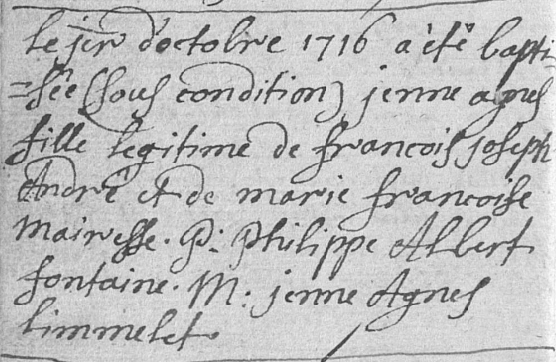 le jer d'octobre 1716 a été bapti
=sée (sous condition) jenne agnes
fille legitime de francois joseph
André et de marie francoise
mairesse. P: Philippe Albert
fontaine. M: jenne Agnes
limmelet